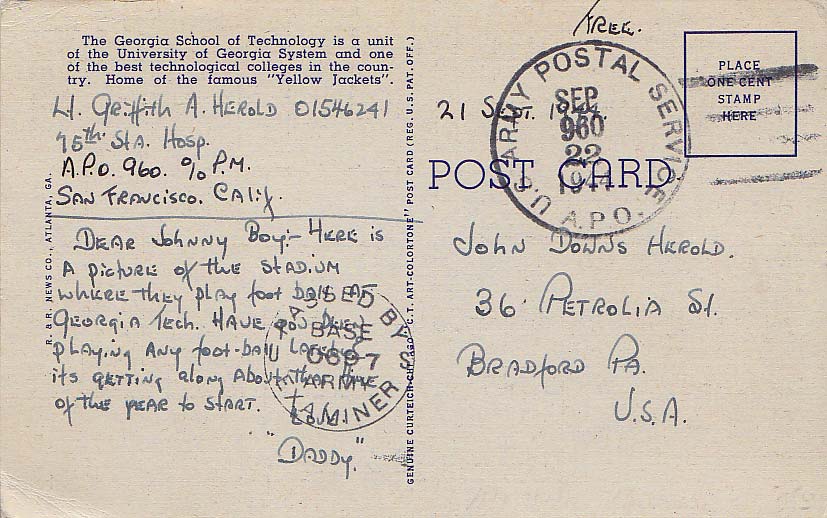 The Georgia School of Technology is a unit
of the University of Georgia System and one
of the best technological colleges in the coun-
try. Home of the famous "Yellow Jackets".
Lt. Griffith A. Herold 01546241
75th Sta. Hosp.
A.P.O. 960. % P.M.
San Francisco. Calif.
Dear Johnny Boy:- Here is
a picture of the stadium
where they play foot ball at
Georgia Tech. Have you been
playing any foot-ball lately
its getting along about that time
of the year to start.
Love.
"Daddy."
PASSED BY
BASE
0697
ARMY
EXAMINER
R. & R. NEWS CO., ATLANTA, GA.
GENUINE CURTEICH-CHICAGO "C.T. ART-COLORTONE" POST CARD (REG. U.S. PAT. OFF.)
Free.
21 Sept. 1944.
U.S. ARMY POSTAL SERVICE
SEP
960
22
1944
A.P.O.
PLACE
ONE CENT
STAMP
HERE
POST CARD
John Downs Herold.
36 Petrolia St.
Bradford Pa.
U.S.A.